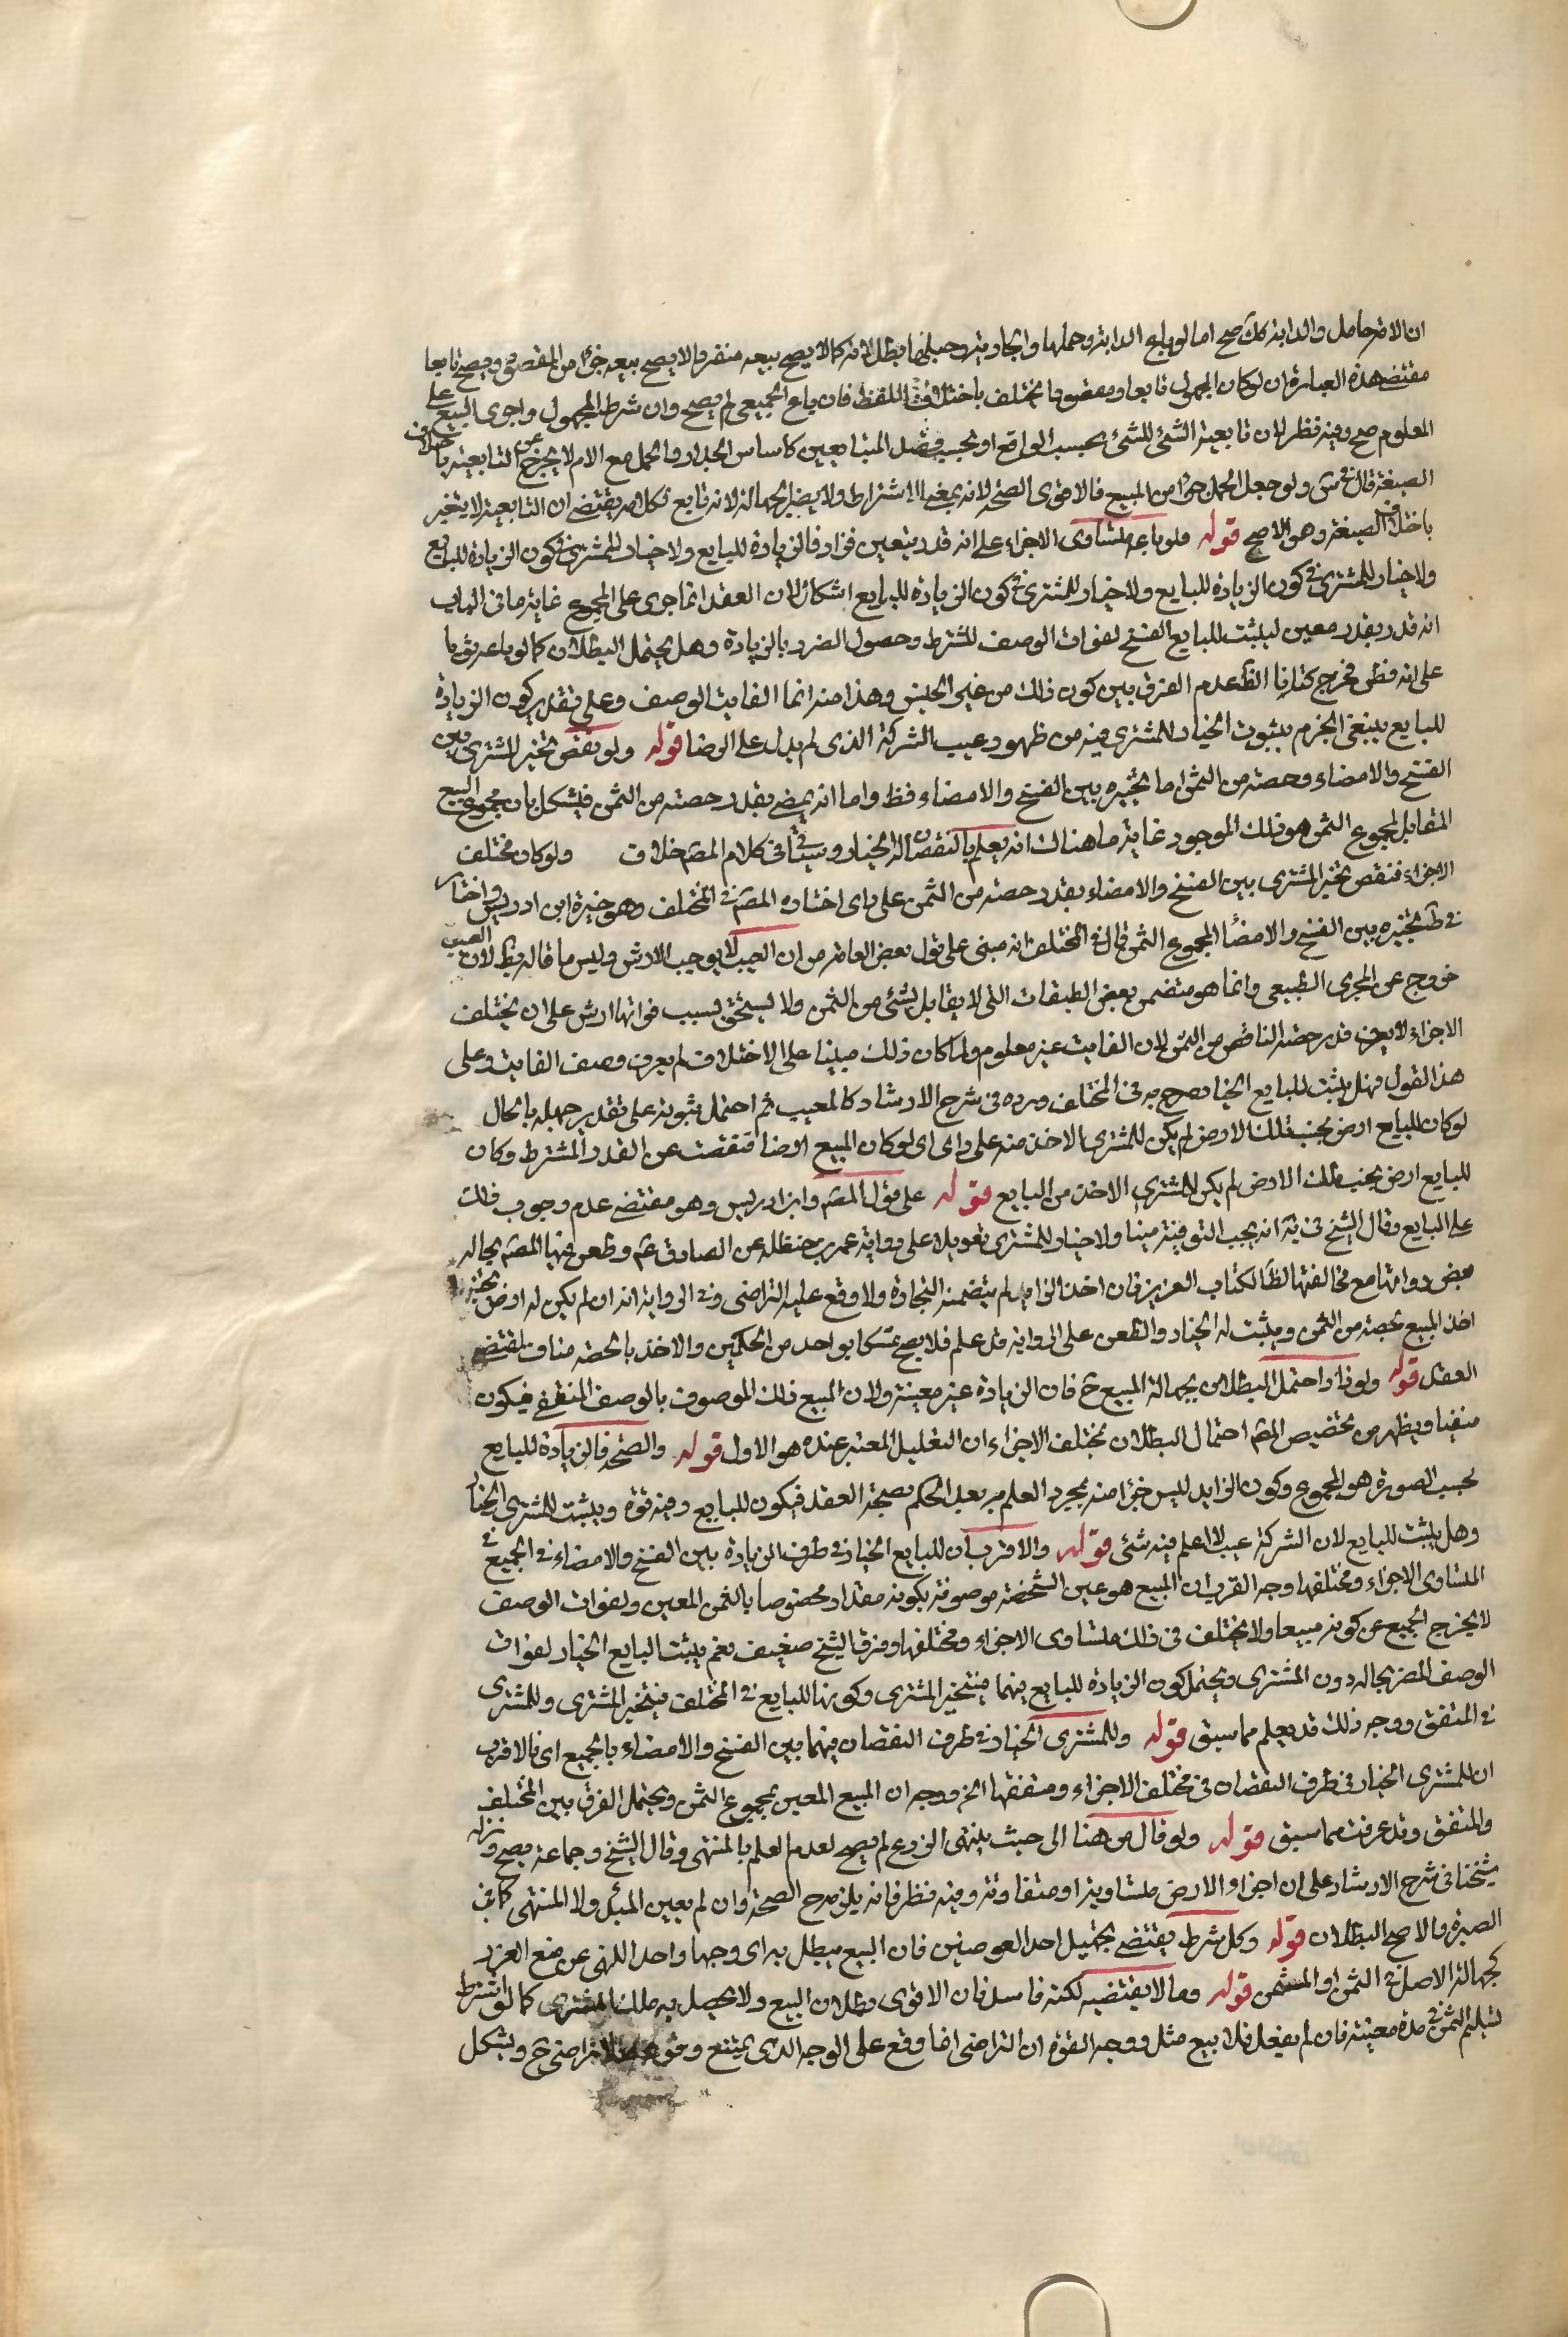 ان الامة حامل والدابة كك صح اما لو باع الدابة وحملها والجارية وحبلها بطل لانه كما لا يصح بيعه منفردا لا يصح بيعه جزءا من المقصود ويصح تابعا
مقتضى هذه العبارة ان لو كان المجهول تابعا ومقصودا يختلف باختلاف اللفظ فان باع الجميع لم يصح وان شرط المجهول واجرى البيع على
المعلوم صح وفيه نظر لان تابعية الشئ للشئ بحسب الواقع او بحسب قصد المتبايعين كاساس الجدار والحمل مع الام لا يخرج عن التابعية باختلاف
الصيغة قال في س ولو جعل الحمل جزءا من المبيع فالاقوى الصحة لانه بمعنى الاشتراط ولا يضر الجهالة لانه تابع فكلامه يقتضى ان التابعية لا يتغير
باختلاف الصيغة وهو الاصح قوله ولو باع متساوى الاجزاء على انه قدر بتعين فزاد فالزيادة للبايع ولا خيار للمشترى في كون الزيادة للبايع
ولا خيار للمشترى في كون الزيادة للبايع ولا خيار للمشترى في كون الزيادة للبايع اشكال لان العقد انما جرى على المجموع غاية ما في الباب
انه قدر بقدر معين ليثبت للبايع الفسخ لفوات الوصف للشرط وحصول الضرر بالزيادة وهل يحتمل البطلان كما لو باع ثوبا
على انه قطن فخرج كتانا الظ عدم الفرق بين كون ذلك من غير الجنس وهذا منه انما الفايت الوصف وعلى تقدير كون الزيادة
للبايع ينبغى الجزم بثبوت الخيار للمشترى فيه من ظهور عيب الشركة الذى لم يدل على الرضا قوله ولو نقص تخير المشترى بين
الفسخ والامضاء وحصته من الثمن اما تخييره بين الفسخ والامضاء فظ واما انه يمضى بقدر حصته من الثمن فيشكل بان مجموع المبيع
المقابل لمجموع الثمن هو ذلك الموجود غاية ما هناك انه يعلم بالنقصان له الخيار وسياتى في كلام المص خلاف ولو كان مختلف
الاجزاء فنقص تخير المشترى بين الفسخ والامضاء بقدر حصته من الثمن على راى اختاره المص في المختلف وهو خيرة ابن ادريس واختار
في ط تخييره بين الفسخ والامضاء لمجموع الثمن قال في المختلف انه مبنى على قول بعض العامة من ان العيب لا يوجب الارش وليس ما قاله بظ لان العيب
خروج عن المجرى الطبيعى وانما هو متضمن بعض الطبقات التى لا يقابل بشئ من الثمن ولا يستحق بسبب فواتها ارش على ان يختلف
الاجزاء لا يعرف قدر حصة الناقص من الثمن لان الفايت غير معلوم ولما كان ذلك مبنيا على الاختلاف لم يعرف وصف الفايت وعلى
هذا القول فهل يثبت للبايع الخيار صرح به في المختلف ورده في شرح الارشاد كالمعيب ثم احتمل ثبوته على تقدير جهله بالحال
لو كان للبايع ارض بجنب تلك الارض لم يكن للمشترى الاخذ منه على راى اى لو كان المبيع ارضا فنقصت عن القدر المشترط وكان
للبايع ارض بجنب تلك الارض لم يكن للمشترى الاخذ من البايع قوله على قول المص وابن ادريس وهو مقتضى عدم وجوب ذلك
على البايع وقال الشيخ في ية انه يجب التوفية منها ولا خيار للمشترى تعويلا على رواية عمر بن حنظلة عن الصادق ع م وطعن فيها المص بجهالة
بعض رواتها مع مخالفتها لظ الكتاب العزيز فان اخذ الزايد لم يتضمنه التجارة ولا وقع عليه التراضى وفي الرواية انه ان لم يكن له ارض تخير
اخذ المبيع بحصته من الثمن ويثبت له الخيار والطعن على الرواية قد علم فلا يصح متمسكا بواحد من الحكمين والاخذ بالحصة مناف لمقتضى
العقد قوله ولو زاد احتمل البطلان بجهالة المبيع ح فان الزيادة غير معينة ولان المبيع ذلك الموصوف بالوصف المنتفى فيكون
منفيا ويظهر من تخصيص المص احتمال البطلان بمختلف الاجزاء ان التعليل المعتبر عنده هو الاول قوله والصحة فالزيادة للبايع
بحسب الصورة هو المجموع وكون الزايد ليس جزءا منه بمجرد العلم به بعد الحكم بصحة العقد فيكون للبايع وفيه قوة ويثبت للمشترى الخيار
وهل يثبت للبايع لان الشركة عيب لا اعلم فيه شئ قوله والاقرب ان للبايع الخيار في طرف الزيادة بين الفسخ والامضاء في الجميع في
المتساوى الاجزاء ومختلفها وجه القرب ان المبيع هو عين الشخصة موصوفة بكونه مقدار مخصوصا بالثمن المعين ولفوات الوصف
لا يخرج الجميع عن كونه مبيعا ولا يختلف في ذلك متساوى الاجزاء ومختلفها وفرق الشيخ ضعيف نعم يثبت البايع الخيار لفوات
الوصف المضر بحاله دون المشترى ويحتمل كون الزيادة للبايع فيهما فيتخير المشترى وكونها للبايع في المختلف فيتخير المشترى وللمشترى
في المتفق ووجه ذلك قد يعلم مما سبق قوله وللمشترى الخيار في طرف النقصان فيهما بين الفسخ والامضاء بالجميع اى فالاقرب
ان للمشترى الخيار في طرف النقصان في مختلف الاجزاء ومتفقها الخ ووجه ان المبيع المعين بمجموع الثمن ويحتمل الفرق بين المختلف
والمتفق وقد عرفت مما سبق قوله ولو قال من هنا الى حيث ينتهى الزرع لم يصح لعدم العلم بالمنتهى وقال الشيخ وجماعة يصح ونزله
شيخنا في شرح الارشاد على ان اجزاء الارض متساوية او متفاوتة وفيه نظر فانه يلزم ح الصحة وان لم يعين المبدأ ولا المنتهى كما في
الصبرة والاصح البطلان قوله وكل شرط يقتضى تجهيل احد العوضين فان البيع يبطل به اى وجها واحد اللنهى عن بيع الغرر
كجهالة الاصل في الثمن او المثمن قوله وما لا يقتضيه لكنه فاسد فان الاقوى بطلان البيع ولا يحصل به ملك المشترى كما لو اشترط
تسليم الثمن في مدة معينة فان لم يفعل فلا بيع مثل ووجه القوة ان التراضى انما وقع على الوجه الذى يمتنع وقوعه التراضى ح ويشكل